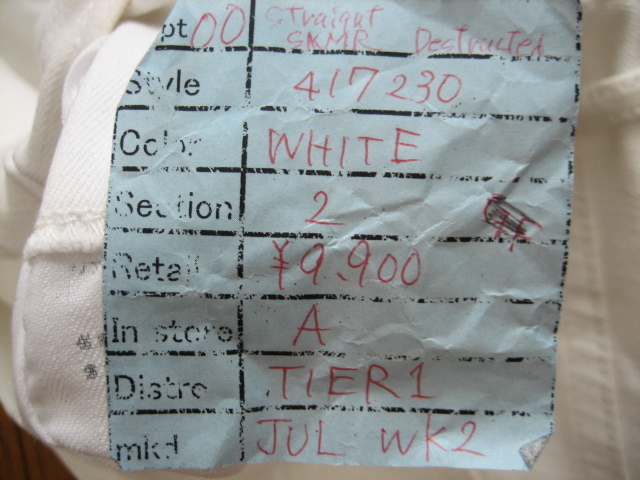 pt 00 Straight
SKMR Destructed
Style 417230
Color WHITE
Section 2
Retail ¥9.900
In store A
Distro TIER1
mkd JUL WK2